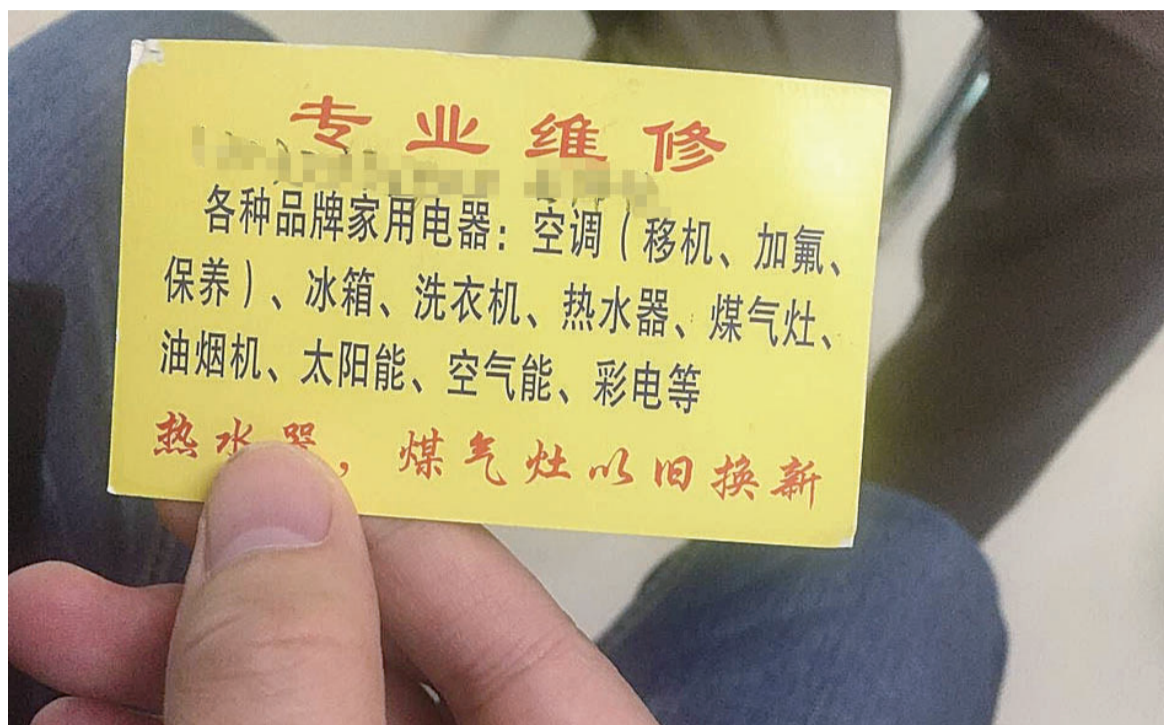 专业维修
各种品牌家用电器：空调（移机、加氟、
保养）、冰箱、洗衣机、热水器、煤气灶、
油烟机、太阳能、空气能、彩电等
热水器，煤气灶以旧换新